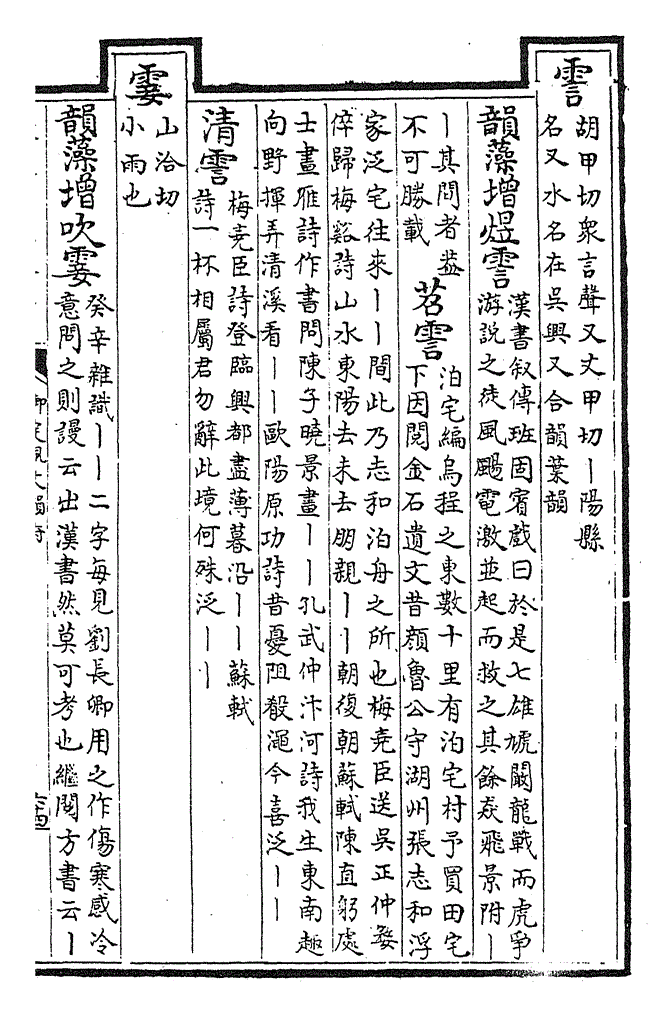 霅
胡甲切衆言聲又丈甲切丨陽縣
名又水名在吳興又合韻葉韻
韻藻增煜霅
漢書叙傳班固賓戲曰於是七雄虓闞龍戰而虎爭
游説之徒風颺電激並起而救之其餘猋飛景附丨
丨其間者葢
不可勝載
苕霅
泊宅編烏程之東數十里有泊宅村予買田宅
下因閲金石遺文昔顔魯公守湖州張志和浮
家泛宅往來丨丨間此乃志和泊舟之所也梅堯臣送吳正仲婺
倅歸梅谿詩山水東陽去未去朋親丨丨朝復朝蘇軾陳直躬處
士畫雁詩作書問陳子曉景畫丨丨孔武仲汴河詩我生東南趣
向野揮弄清溪看丨丨歐陽原功詩昔憂阻殽澠今喜泛丨丨
清霅
梅堯臣詩登臨興都盡薄暮沿丨丨蘇軾
詩一杯相屬君勿辭此境何殊泛丨丨
霎
山洽切
小雨也
韻藻增吹霎
癸辛雜識丨丨二字每見劉長卿用之作傷寒感冷
意問之則謾云出漢書然莫可考也繼閲方書云丨